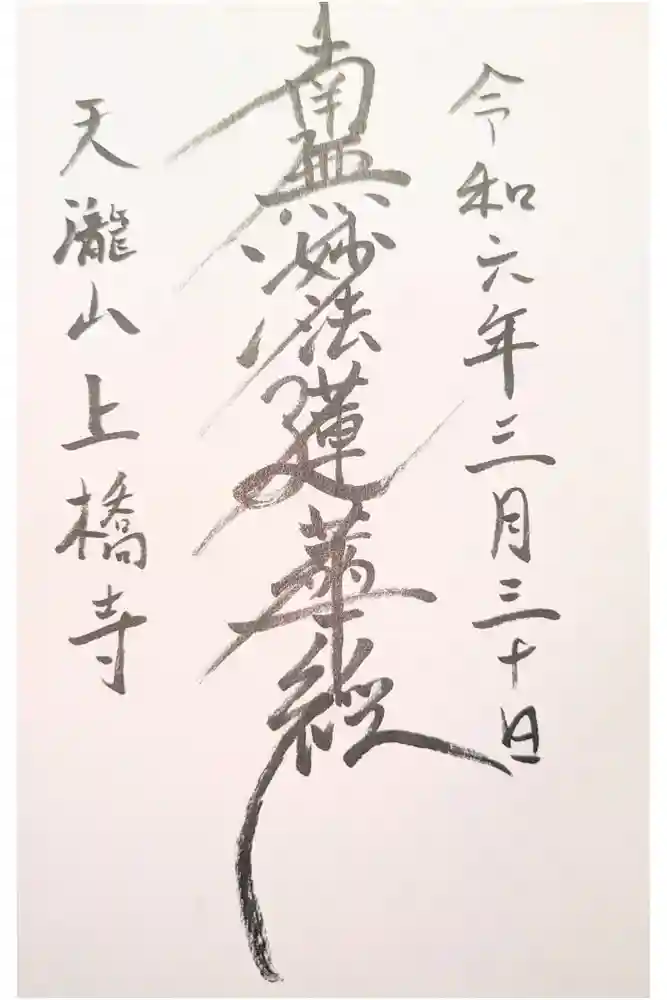 令和六年三月三十日
南無妙法蓮華経
天瀧山上橋寺